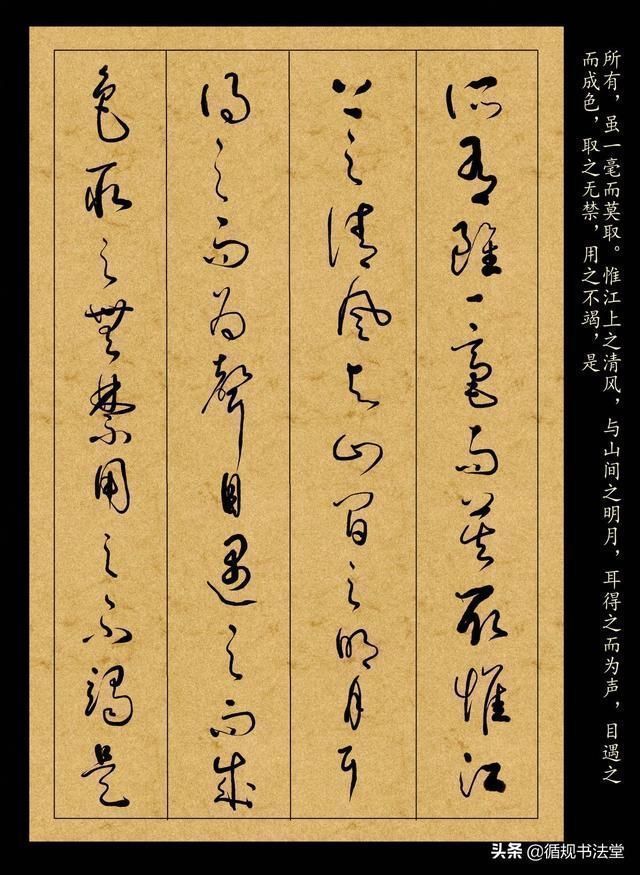 所有，虽一毫而莫取。惟江上之清风，与山间之明月，耳得之而为声，目遇之
而成色，取之无禁，用之不竭，是
所有雖一毫而莫取惟江
上之清風与山間之明月耳
得之而為聲目遇之而成
色取之無禁用之不竭是
头条 @循规书法堂